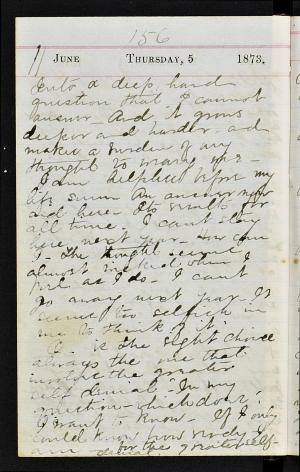 156
11 JUNE THURSDAY, 5 1873.
into a deep, hard
question that I cannot
answer. And it grows
deeper and harder and
makes a burden of any
thought to weary me –
I am helpless before my
life, seems an answer now
and here. Its results for
all time. I can't stay
here next year. How can
I – the thought seems
almost wicked, when I
feel as I do – I can't
go away next year. It
seems too selfish in
me to think of it.
It is the right choice
always the one that
involves the greater
self denial. In my
question – which does?
I want to know. If I only
could know how surely I
am